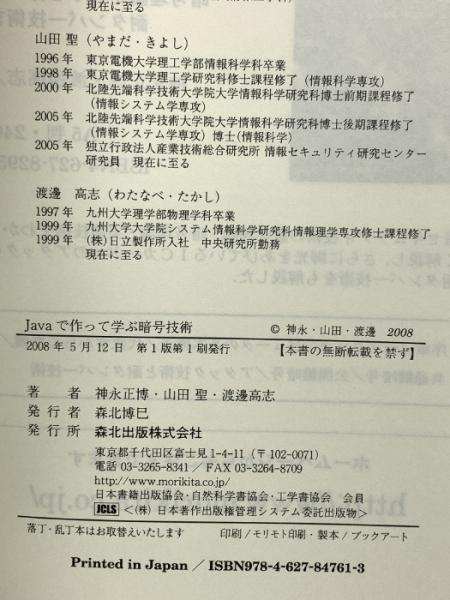 現在に至る
山田 聖(やまだ・きよし)
1996年 東京電機大学理工学部情報科学科卒業
1998年 東京電機大学理工学研究科修士課程修了(情報科学専攻)
2000年 北陸先端科学技術大学院大学情報科学研究科博士前期課程修了
(情報システム学専攻)
2005年 北陸先端科学技術大学院大学情報科学研究科博士後期課程修了
(情報システム学専攻) 博士(情報科学)
2005年 独立行政法人産業技術総合研究所 情報セキュリティ研究センター
研究員 現在に至る
渡邊 高志(わたなべ・たかし)
1997年 九州大学理学部物理学科卒業
1999年 九州大学大学院システム情報科学研究科情報理学専攻修士課程修了
1999年 (株)日立製作所入社 中央研究所勤務
現在に至る
Javaで作って学ぶ暗号技術 © 神永・山田・渡邊 2008
2008年5月12日 第1版第1刷発行 【本書の無断転載を禁ず】
著者 神永正博・山田 聖・渡邊高志
発行者 森北博巳
発行所 森北出版株式会社
東京都千代田区富士見1-4-11(〒102-0071)
電話 03-3265-8341/FAX 03-3264-8709
http://www.morikita.co.jp/
日本書籍出版協会・自然科学書協会・工学書協会 会員
JCLS <(株)日本著作出版権管理システム委託出版物>
落丁・乱丁本はお取替えいたします 印刷/モリモト印刷・製本/ブックアート
Printed in Japan/ISBN978-4-627-84761-3